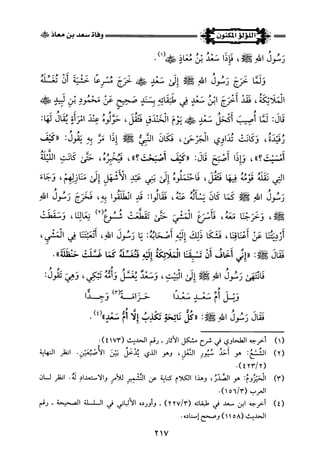 اللؤلؤ المكنون
وفاة سعد بن معاذ ﷺ
رَسُولُ اللهِ ﷺ، فَإِذَا سَعْدُ بْنُ مُعَاذٍ ﷺ(١).
وَلَمَّا خَرَجَ رَسُولُ اللهِ ﷺ إِلَىٰ سَعْدٍ ﷺ خَرَجَ مُسْرِعًا خَشْيَةَ أَنْ تُغَسِّلَهُ
الْمَلَائِكَةُ، فَقَدْ أَخْرَجَ ابْنُ سَعْدٍ فِي طَبَقَاتِهِ بِسَنَدٍ صَحِيحٍ عَنْ مَحْمُودِ بْنِ لَبِيدٍ ﷺ
قَالَ: لَمَّا أُصِيبَ أَكْحَلُ سَعْدٍ ﷺ يَوْمَ الْخَنْدَقِ فَثَقُلَ، حَوَّلُوهُ عِنْدَ امْرَأَةٍ يُقَالُ لَهَا:
رُفَيْدَةُ، وَكَانَتْ تُدَاوِي الْجَرْحَىٰ، فَكَانَ النَّبِيُّ ﷺ إِذَا مَرَّ بِهِ يَقُولُ: «كَيْفَ
أَمْسَيْتَ؟»، وَإِذَا أَصْبَحَ قَالَ: «كَيْفَ أَصْبَحْتَ؟»، فَيُخْبِرُهُ، حَتَّىٰ كَانَتِ اللَّيْلَةُ
الَّتِي نَقَلَهُ قَوْمُهُ فِيهَا فَثَقُلَ، فَاحْتَمَلُوهُ إِلَىٰ بَنِي عَبْدِ الْأَشْهَلِ إِلَىٰ مَنَازِلِهِمْ، وَجَاءَ
رَسُولُ اللهِ ﷺ كَمَا كَانَ يَسْأَلُهُ عَنْهُ، فَقَالُوا: قَدِ انْطَلَقُوا بِهِ، فَخَرَجَ رَسُولُ اللهِ
ﷺ، وَخَرَجْنَا مَعَهُ، فَأَسْرَعَ الْمَشْيَ حَتَّىٰ تَقَطَّعَتْ شُسُوعُ(٢) نِعَالِنَا، وَسَقَطَتْ
أَرْدِيَتُنَا عَنْ أَعْنَاقِنَا، فَشَكَا ذَلِكَ إِلَيْهِ أَصْحَابُهُ: يَا رَسُولَ اللهِ، أَتْعَبْتَنَا فِي الْمَشْيِ،
فَقَالَ ﷺ: «إِنِّي أَخَافُ أَنْ تَسْبِقَنَا الْمَلَائِكَةُ إِلَيْهِ فَتُغَسِّلَهُ كَمَا غَسَّلَتْ حَنْظَلَةَ».
فَانْتَهَىٰ رَسُولُ اللهِ ﷺ إِلَىٰ الْبَيْتِ، وَسَعْدٌ يُغَسَّلُ وَأُمُّهُ تَبْكِي، وَهِيَ تَقُولُ:
وَيْلُ أُمِّ سَعْدٍ سَعْدًا حَزَامَةً(٣) وَجِدًّا
فَقَالَ رَسُولُ اللهِ ﷺ: «كُلُّ نَائِحَةٍ تَكْذِبُ إِلَّا أُمَّ سَعْدٍ»(٤).
(١) أخرجه الطحاوي في شرح مشكل الآثار ـ رقم الحديث (٤١٧٣).
(٢) الشِّسْعُ: هو أَحَدُ سُيُورِ النَّعْلِ، وهو الذي يُدْخَلُ بَيْنَ الأُصْبُعَيْنِ. انظر النهاية
(٤٢٣/٢)
(٣) الْحَيْزُومُ: هو الصَّدْرُ، وهذا الكلام كناية عن التَّشْمِيرِ للأمر والاستعداد لَهُ. انظر لسان
العرب (١٥٦/٣).
(٤) أخرجه ابن سعد في طبقاته (٢٢٧/٣) ـ وأورده الألباني في السلسلة الصحيحة ـ رقم
الحديث (١١٥٨) وصحح إسناده.
٢١٧